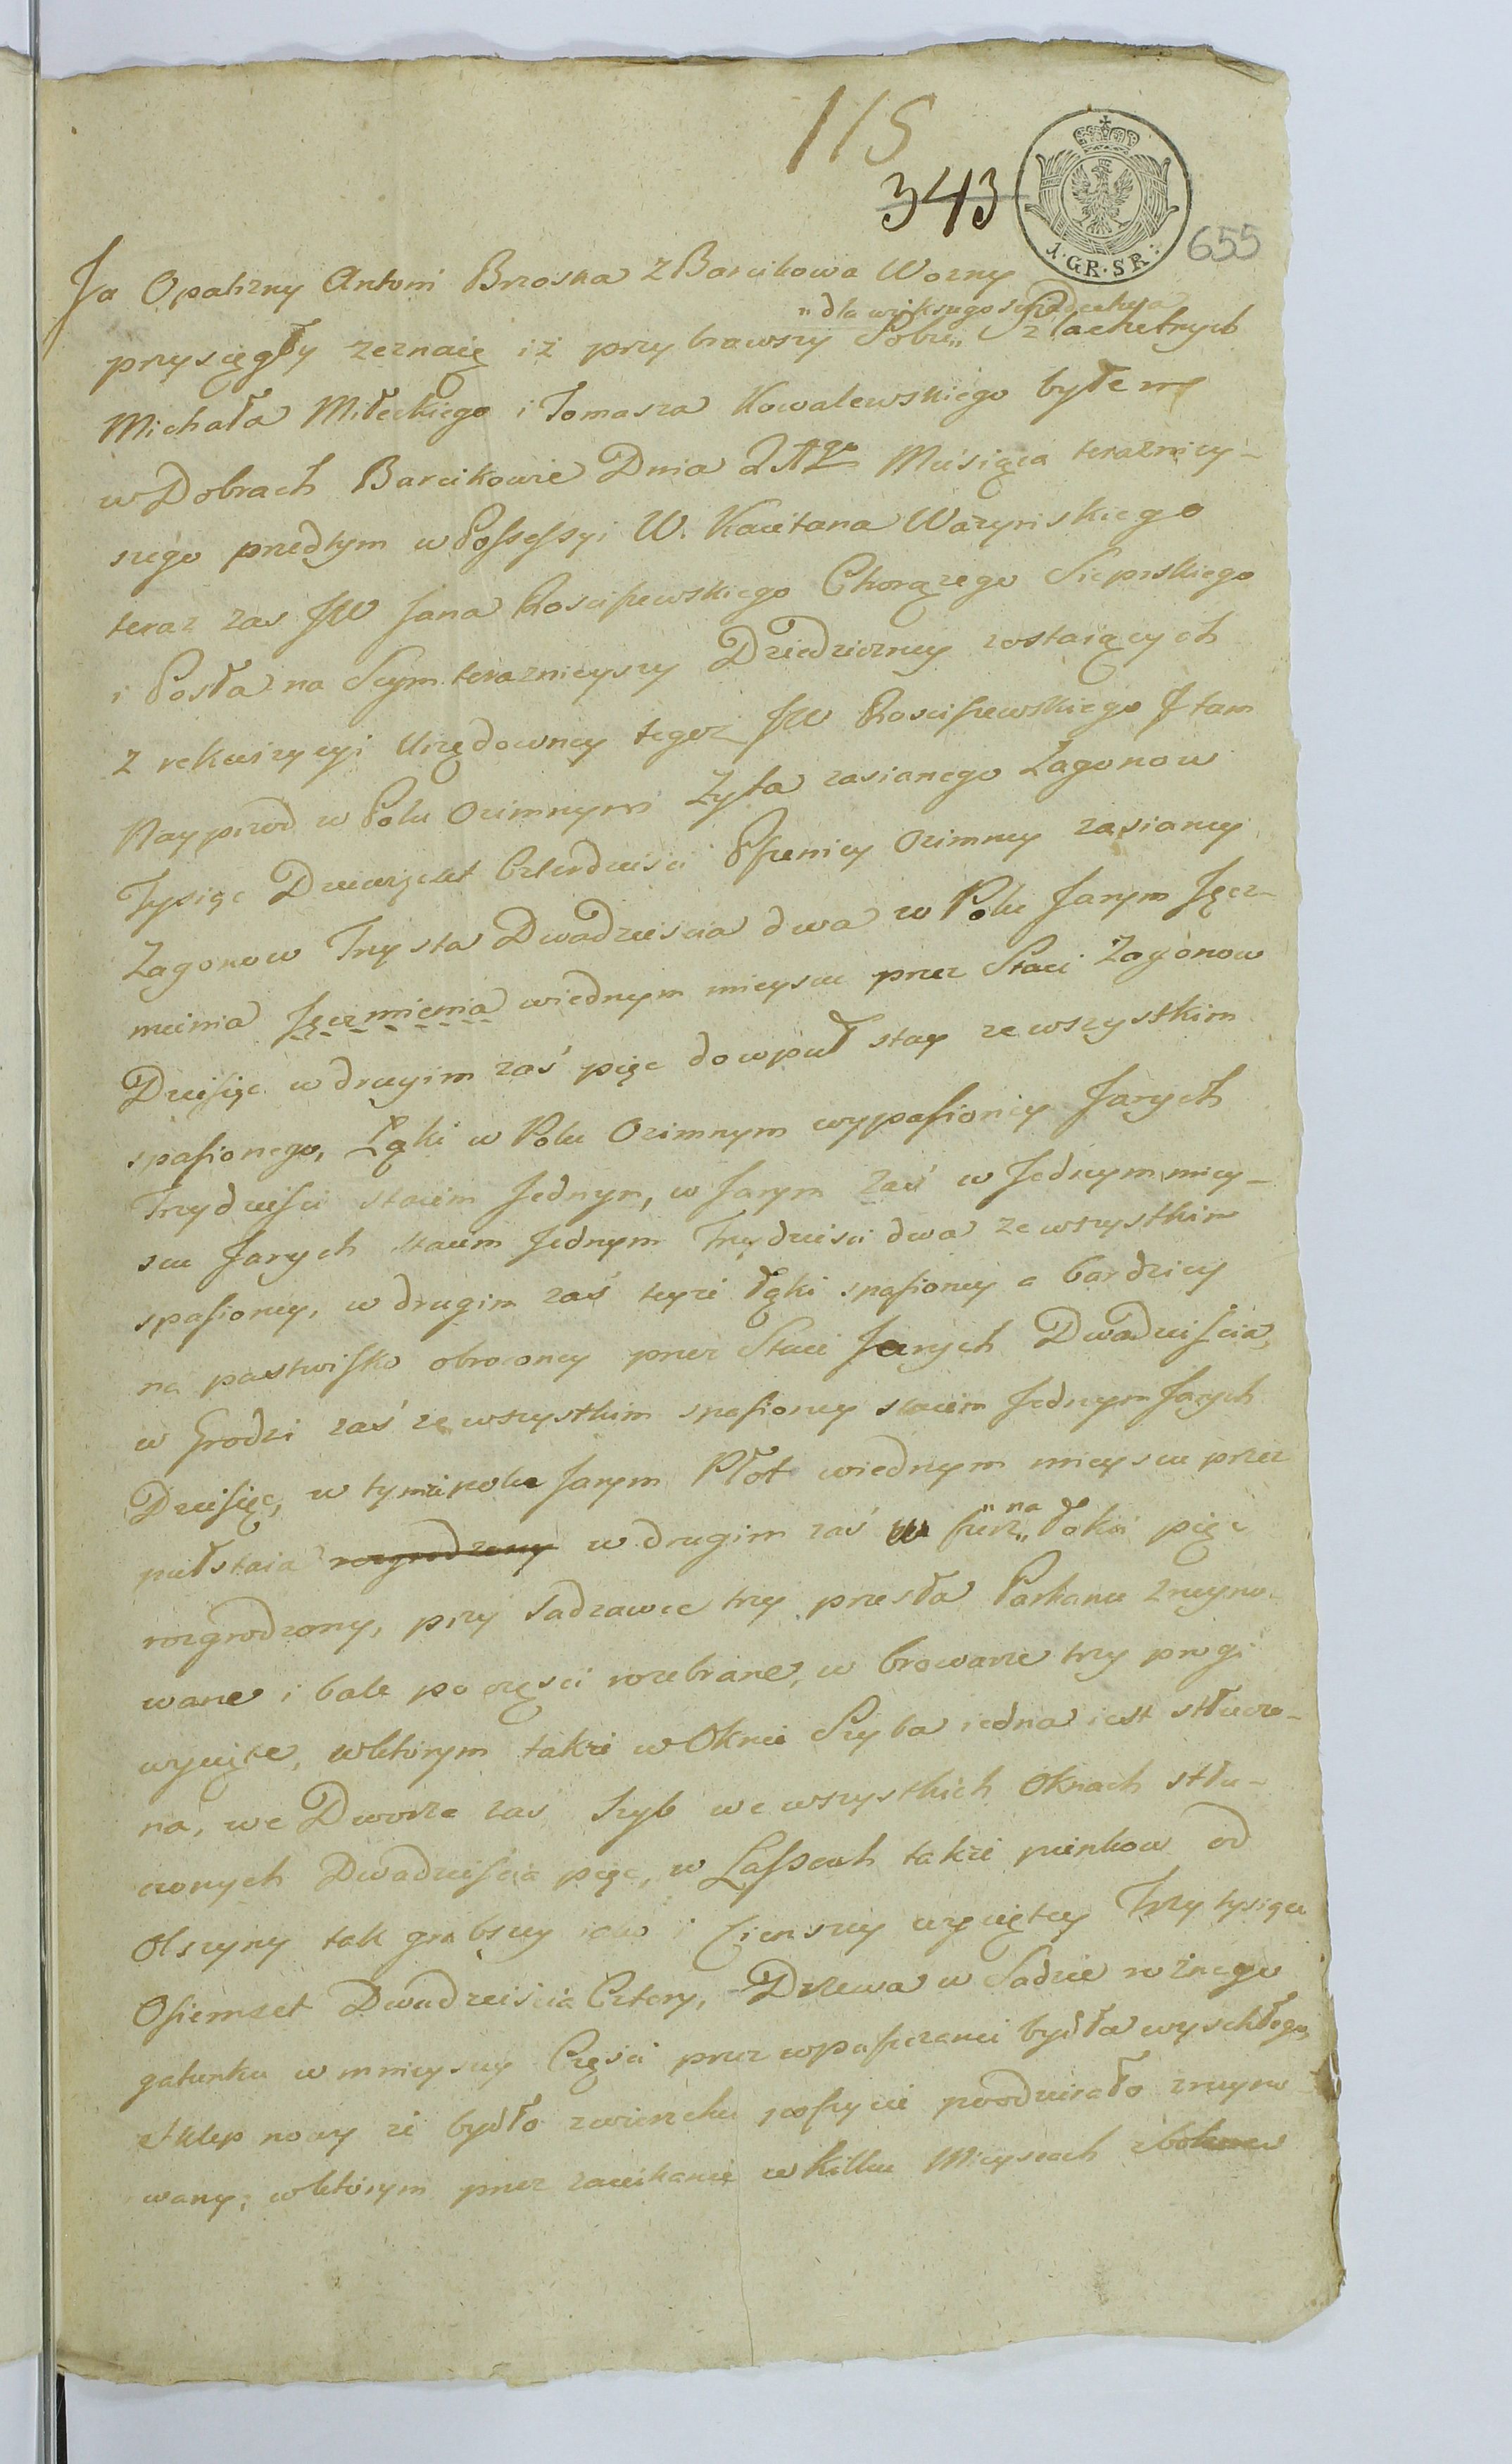 115
343
1. GR. SR.
655
Ja Opatrzny Antoni Brzoska z Barcikowa Wozny
" dla większego swiadectwa
przysięgły zeznaię iż przybrawszy Sobie „ Szlachetnych
Michała Miłeckiego i Tomasza Kowalewskiego byłem
w Dobrach Barcikowie Dnia Miesiąca terazniey-
szego przedtym w Possessyi W. Kaietana Ważynskiego
teraz zas JW Jana Rosciszewskiego Chorążego Sieprskiego
i Posła na Seym teraznieyszy Dziedziczney zostaiących
z rekwizycyi Urzędowney tegoż JW Rosciszewskiego J tam
Nayprzod w Polu Ozimnym Żyta zasianego Zagonow
Tysiąc Dwiescie Czterdziesci Pszenicy Ozimney zasianey
Zagonow Trzysta Dwadziescia dwa w Polu Jarym Jęcz-
mienia Jęczmienia wiednym mieyscu przez Staie Zagonow
Dziesięc w drugim zaś pięc do wpuł stay ze wszystkim
spasionego, Łąki w Polu Ozimnym wypasioney Jarych
Trzydziesci staiem Jednym, w Jarym zaś w Jednym miey-
scu Jarych staiem Jednym Trzydziesci dwa ze wszystkim
spasioney, w drugim zaś teyże łąki spasioney a bardziey
na pastwisko obroconey przez Staie Jarych Dwadziescia,
w Grodzi zaś ze wszystkim spasioney staiem Jednym Jarych
Dziesięc, w tymże polu Jarym Płot wiednym mieyscu przez
" na
pułstaia rozgrodzony w drugim zaś „ łokci pięc
rozgrodzony, przy sadzawce trzy przesła Parkanu zruyno-
wane i bale po częsci rozebrane, w browarze trzy progi
wycięte, wktorym także w Oknie Szyba iedna iest stłuczo-
na, we Dworze zas Szyb we wszystkich Oknach stłu-
czonych Dwadziescia pięc, w Lassach także pienkow od
Olszyny tak grubszey iako i Cienszey wyciętey Trzy tysiące
Osiemset Dwadziescia Cztery, Drzewa w Sadzie rożnego
gatunku w mnieyszey Częsci przez wpuszczenie bydła wyschłego,
Sklep nowy że bydło zwierzchu poszycie poodzierało zruyno-
wany, wktorym przez zaciekanie w kilku Mieyscach